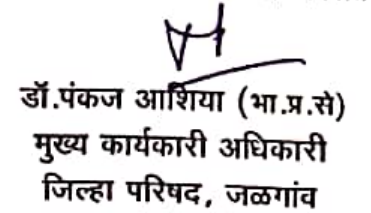 डॉ.पंकज आशिया (भा.प्र.से)
मुख्य कार्यकारी अधिकारी
जिल्हा परिषद, जळगांव